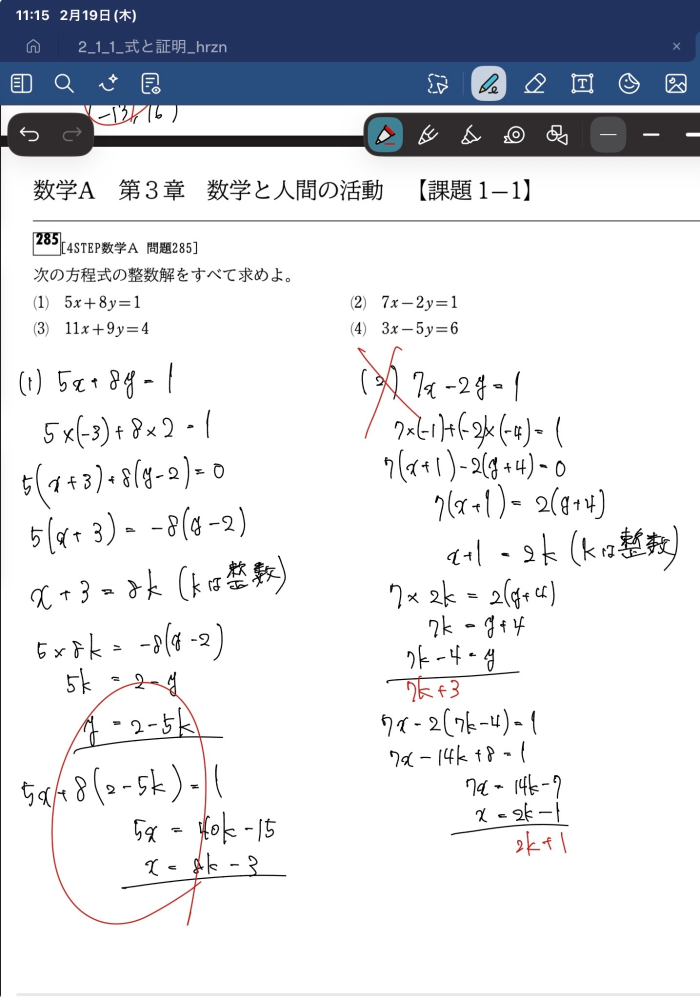 11:15 2月19日(木)
2_1_1_式と証明_hrzn
(-13, 16)
数学A 第3章 数学と人間の活動 【課題1-1】
285 [4STEP数学A 問題285]
次の方程式の整数解をすべて求めよ。
(1) 5x+8y=1
(2) 7x-2y=1
(3) 11x+9y=4
(4) 3x-5y=6
(1) 5x+8y=1
5×(-3)+8×2=1
5(x+3)+8(y-2)=0
5(x+3)=-8(y-2)
x+3=8k (kは整数)
5×8k=-8(y-2)
5k=2-y
y=2-5k
5x+8(2-5k)=1
5x=40k-15
x=8k-3
(2) 7x-2y=1
7×(-1)+(-2)×(-4)=1
7(x+1)-2(y+4)=0
7(x+1)=2(y+4)
x+1=2k (kは整数)
7×2k=2(y+4)
7k=y+4
7k-4=y
7k+3
7x-2(7k-4)=1
7x-14k+8=1
7x=14k-7
x=2k-1
2k+1